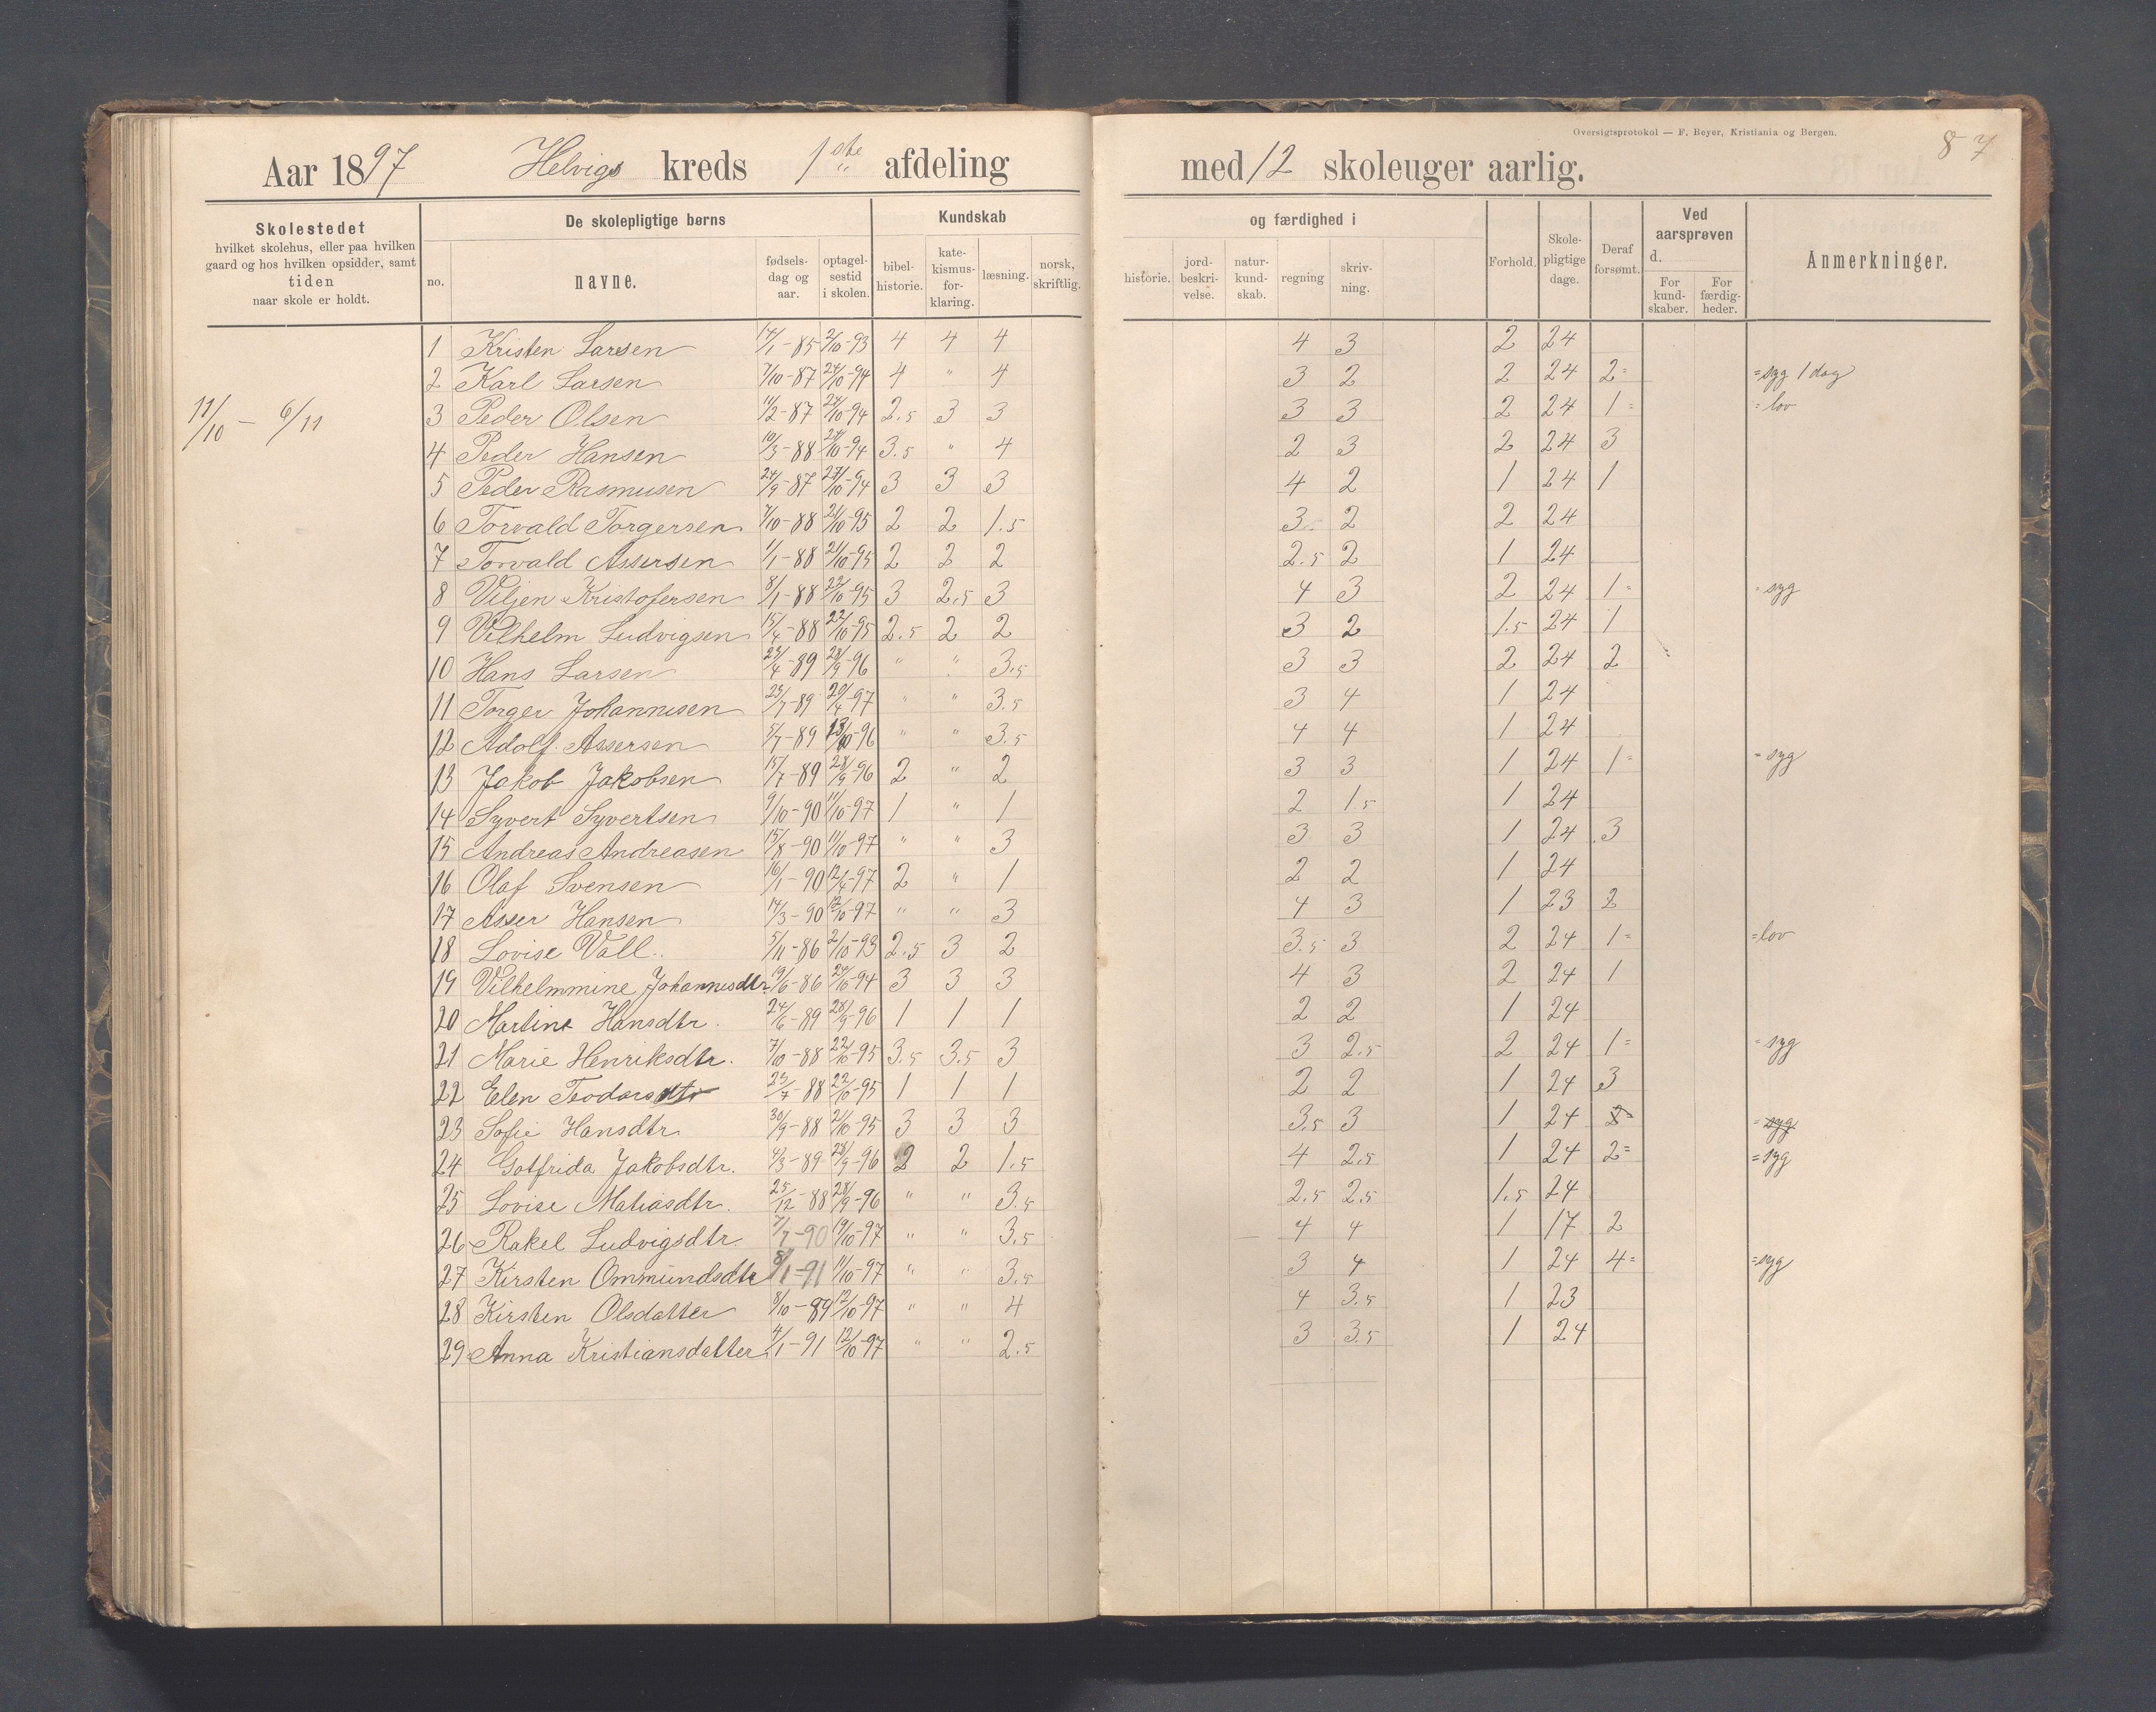 Oversigtsprotokol — F. Beyer, Kristiania og Bergen.
87
Aar 1897 Helvigs kreds 1ste afdeling med 12 skoleuger aarlig.
Skolestedet hvilket skolehus, eller paa hvilken gaard og hos hvilken opsidder, samt tiden naar skole er holdt.
De skolepligtige børns
no. navne. fødselsdag og aar. optagelsestid i skolen.
Kundskab og færdighed i
bibelhistorie. katekismusforklaring. læsning. norsk, skriftlig. historie. jordbeskrivelse. naturkundskab. regning skrivning.
Forhold. Skolepligtige dage. Deraf forsømt.
Ved aarsprøven d. For kundskaber. For færdigheder.
Anmerkninger.
11/10 – 6/11
1 Kristen Larsen 14/1-85 2/10-93 4 4 4 4 3 2 24
2 Karl Larsen 7/10-87 24/10-94 4 " 4 3 2 2 24 2= =syg 1 dag
3 Peder Olsen 11/2-87 24/10-94 2.5 3 3 3 3 2 24 1= =lov
4 Peder Hansen 10/3-88 24/10-94 3.5 " 4 2 3 2 24 3
5 Peder Rasmusen 24/9-87 27/10-94 3 3 3 4 2 1 24 1
6 Torvald Torgersen 7/10-88 21/10-95 2 2 1.5 3 2 2 24
7 Torvald Assersen 1/1-88 21/10-95 2 2 2 2.5 2 1 24
8 Viljen Kristofersen 8/1-88 22/10-95 3 2.5 3 4 3 2 24 1= =syg
9 Vilhelm Ludvigsen 15/4-88 22/10-95 2.5 2 2 3 2 1.5 24 1
10 Hans Larsen 23/4-89 28/9-96 " " 3.5 3 3 2 24 2
11 Torger Johannesen 25/7-89 20/4-97 " " 3.5 3 4 1 24
12 Adolf Assersen 5/7-89 13/10-96 " " 3.5 4 4 1 24
13 Jakob Jakobsen 15/7-89 28/9-96 2 " 2 3 3 1 24 1= =syg
14 Syvert Syvertsen 9/10-90 11/10-97 1 " 1 2 1.5 1 24
15 Andreas Andreasen 15/8-90 11/10-97 " " 3 3 3 1 24 3
16 Olaf Svensen 16/1-90 12/4-97 2 " 1 2 2 1 24
17 Asser Hansen 14/3-90 12/10-97 " " 3 4 3 1 23 2
18 Lovise Vall. 5/11-86 2/10-93 2.5 3 2 3.5 3 2 24 1= =lov
19 Vilhelmmine Johannesdtr 19/6-86 24/10-94 3 3 3 4 3 2 24 1
20 Martine Hansdtr. 24/6-89 28/9-96 1 1 1 2 2 1 24
21 Marie Henriksdtr. 7/10-88 22/10-95 3.5 3.5 3 3 2.5 2 24 1= =syg
22 Elen Teodorsdtr 23/7-88 22/10-95 1 1 1 2 2 1 24 3
23 Sofie Hansdtr 30/9-88 21/10-95 3 3 3 3.5 3 1 24 =syg
24 Gotfrida Jakobsdtr. 4/3-89 28/9-96 2 2 1.5 4 2.5 1 24 2= =syg
25 Lovise Matiasdtr. 25/12-88 28/9-96 " " 3.5 2.5 2.5 1.5 24
26 Rakel Ludvigsdtr. 7/7-90 19/10-97 " " 3.5 4 4 1 17 2
27 Kirsten Ommundsdtr 8/1-91 11/10-97 " " 3.5 3 4 1 24 4= =syg
28 Kirsten Olsdatter 8/10-89 12/10-97 " " 4 4 3.5 1 23
29 Anna Kristiansdatter 4/1-91 12/10-97 " " 2.5 3 3.5 1 24